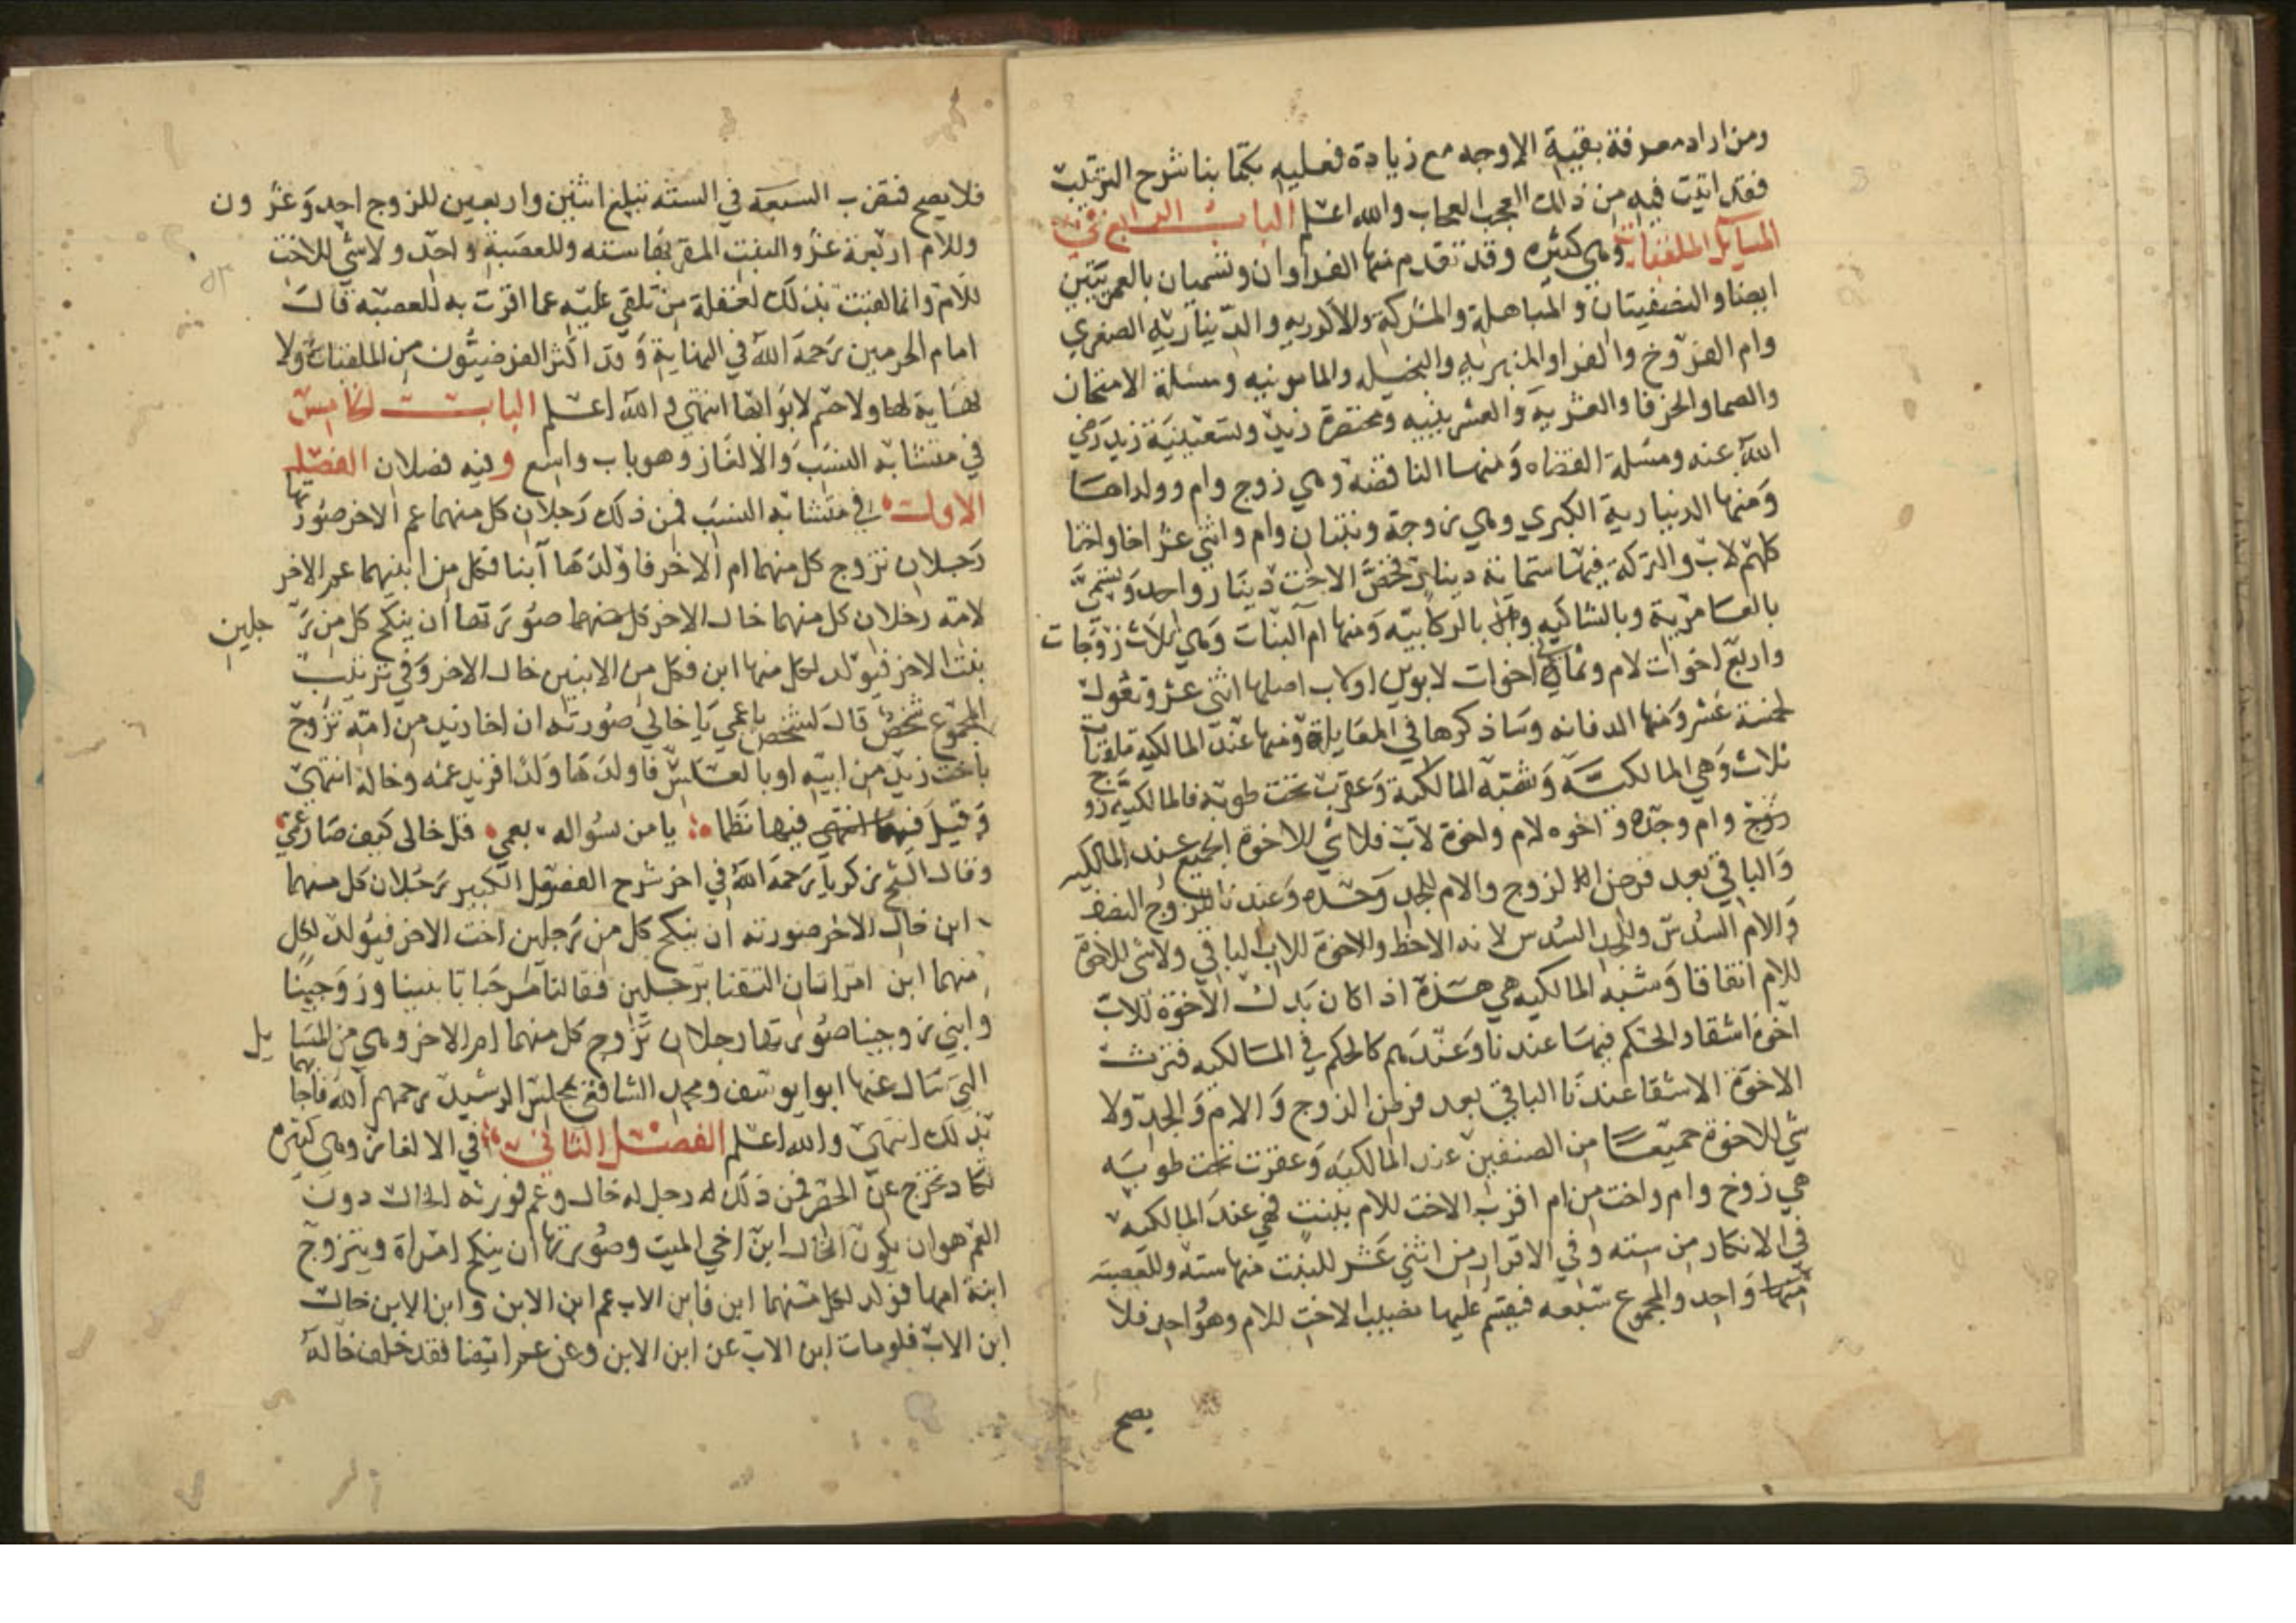 ومن اراد معرفة بقية الاوجه مع زيادة فعليه بكتابنا شرح الترتيب
فقد اتيت فيه من ذلك العجب العجاب والله اعلم الباب الرابع في
المسايل الملقبات وهي كثيرة وقد تقدم منها الغراوان وتسميان بالعمريتين
ايضا والنصفيتان والمباهلة والمشركة والاكدرية والدينارية الصغري
وام الفروخ والغرا والمنبرية والبخيلة والمامونية ومسئلة الامتحان
والصما والخرقا والعشرية والعشرينية ومختصرة زيد وتسعينية زيد رضي
الله عنه ومسلة القضاه ومنها الناقضة وهي زوج وام وولداها
ومنها الدينارية الكبري وهي زوجة وبنتان وام واثني عشر اخا واختا
كلهم لاب والتركة فيها ستماية دينار فخص الاخت دينار واحد وتسمي
بالعامرية وبالشاكية وبالركابية ومنها ام البنات وهي ثلاث زوجات
واربع اخوات لام وثماني اخوات لابوين او لاب اصلها اثني عشر وتعول
لخمسة عشر ومنها الدفانه وساذكرها في المعاياة ومنها عند المالكية ملقبات
ثلاث وهي المالكية وشبه المالكية وعقرب تحت طوبة فالمالكية زو
زوج وام وجد واخوه لام واخوة لاب فلا شي للاخوة الجميع عند المالكية
والباقي بعد فرض الزوج والام للجد وحده وعندنا للزوج النصف
وللام السدس وللجد السدس لانه الاحظ والاخوة للاب الباقي ولاشي للاخوة
للام اتفاقا وشبه المالكيه هي هذه اذا كان بدل الاخوة للاب
اخوة اشقا والحكم فيها عندنا وعندهم كالحكم في المالكيه فترث
الاخوة الاشقا عندنا الباقي بعد فرض الزوج والام والجد ولا
شي للاخوة جميعا من الصنفين عند المالكية وعقرب تحت طوبه
هي زوج وام واخت من ام اقرت الاخت للام ببنت فهي عند المالكيه
في الانكار من سته وفي الاقرار من اثني عشر للبنت منها سته وللعصبة
منها واحد والمجموع سبعه فيقسم عليها نصيب الاخت للام وهو واحد فلا
يصح
فلا يصح فتضرب السبعة في الستة تبلغ اثنين واربعين للزوج احد وعشرون
وللام اربعة عشر والبنت المقر بها سته وللعصبة واحد ولا شي للاخت
للام وانما لقبت بذلك لغفلة من تلقي عليه عما اقرت به للعصبه قال
امام الحرمين رحمه الله في النهاية وقد اكثر الفرضيون من الملقبات ولا
نهاية لها ولا حسم لابوابها انتهي والله اعلم الباب الخامس
في متشابه النسب والالغاز وهو باب واسع وفيه فصلان الفصل
الاول في متشابه النسب فمن ذلك رجلان كل منهما عم الاخر صورتها
رجلان تزوج كل منهما ام الاخر فاولدها ابنا فكل من ابنيهما عم الاخر
لامه رجلان كل منهما خال الاخر صورتها ان ينكح كل من رجلين
بنت الاخر فيولد لكل منهما ابن فكل من الابنين خال الاخر وفي ترتيب
المجموع شخص قال لشخص يا عمي يا خالي صورته ان اخا زيد من امه تزوج
باخت زيد من ابيه او بالعكس فاولدها ولدا فزيد عمه وخاله انتهي
وقيل فيها نظما يا من سؤاله بعمي قل خالى كيف صار عمي
وقال الشيخ زكريا رحمه الله في اخر شرح الفصول الكبير رجلان كل منهما
ابن خال الاخر صورته ان ينكح كل من رجلين اخت الاخر فيولد لكل
منهما ابن امراتان التقتا برجلين فقالتا مرحبا بابنينا وزوجينا
وابني زوجينا صورتها رجلان تزوج كل منهما ام الاخر وهي من المسايل
التي سال عنها ابو يوسف ومحمد الشافعي بمجلس الرشيد رحمهم الله فاجابهما
بذلك انتهي والله اعلم الفصل الثاني في الالغاز وهي كثيرة
تكاد تخرج عن الحصر فمن ذلك رجل له خال وعم فورثه الخال دون
العم هو ان يكون الخال ابن اخي الميت وصورتها ان ينكح امراة ويتزوج
ابنه امها فولد لكل منهما ابن فابن الاب عم ابن الابن وابن الابن خال
ابن الاب فلو مات ابن الاب عن ابن الابن وعن عم ايضا فقد خلف خاله